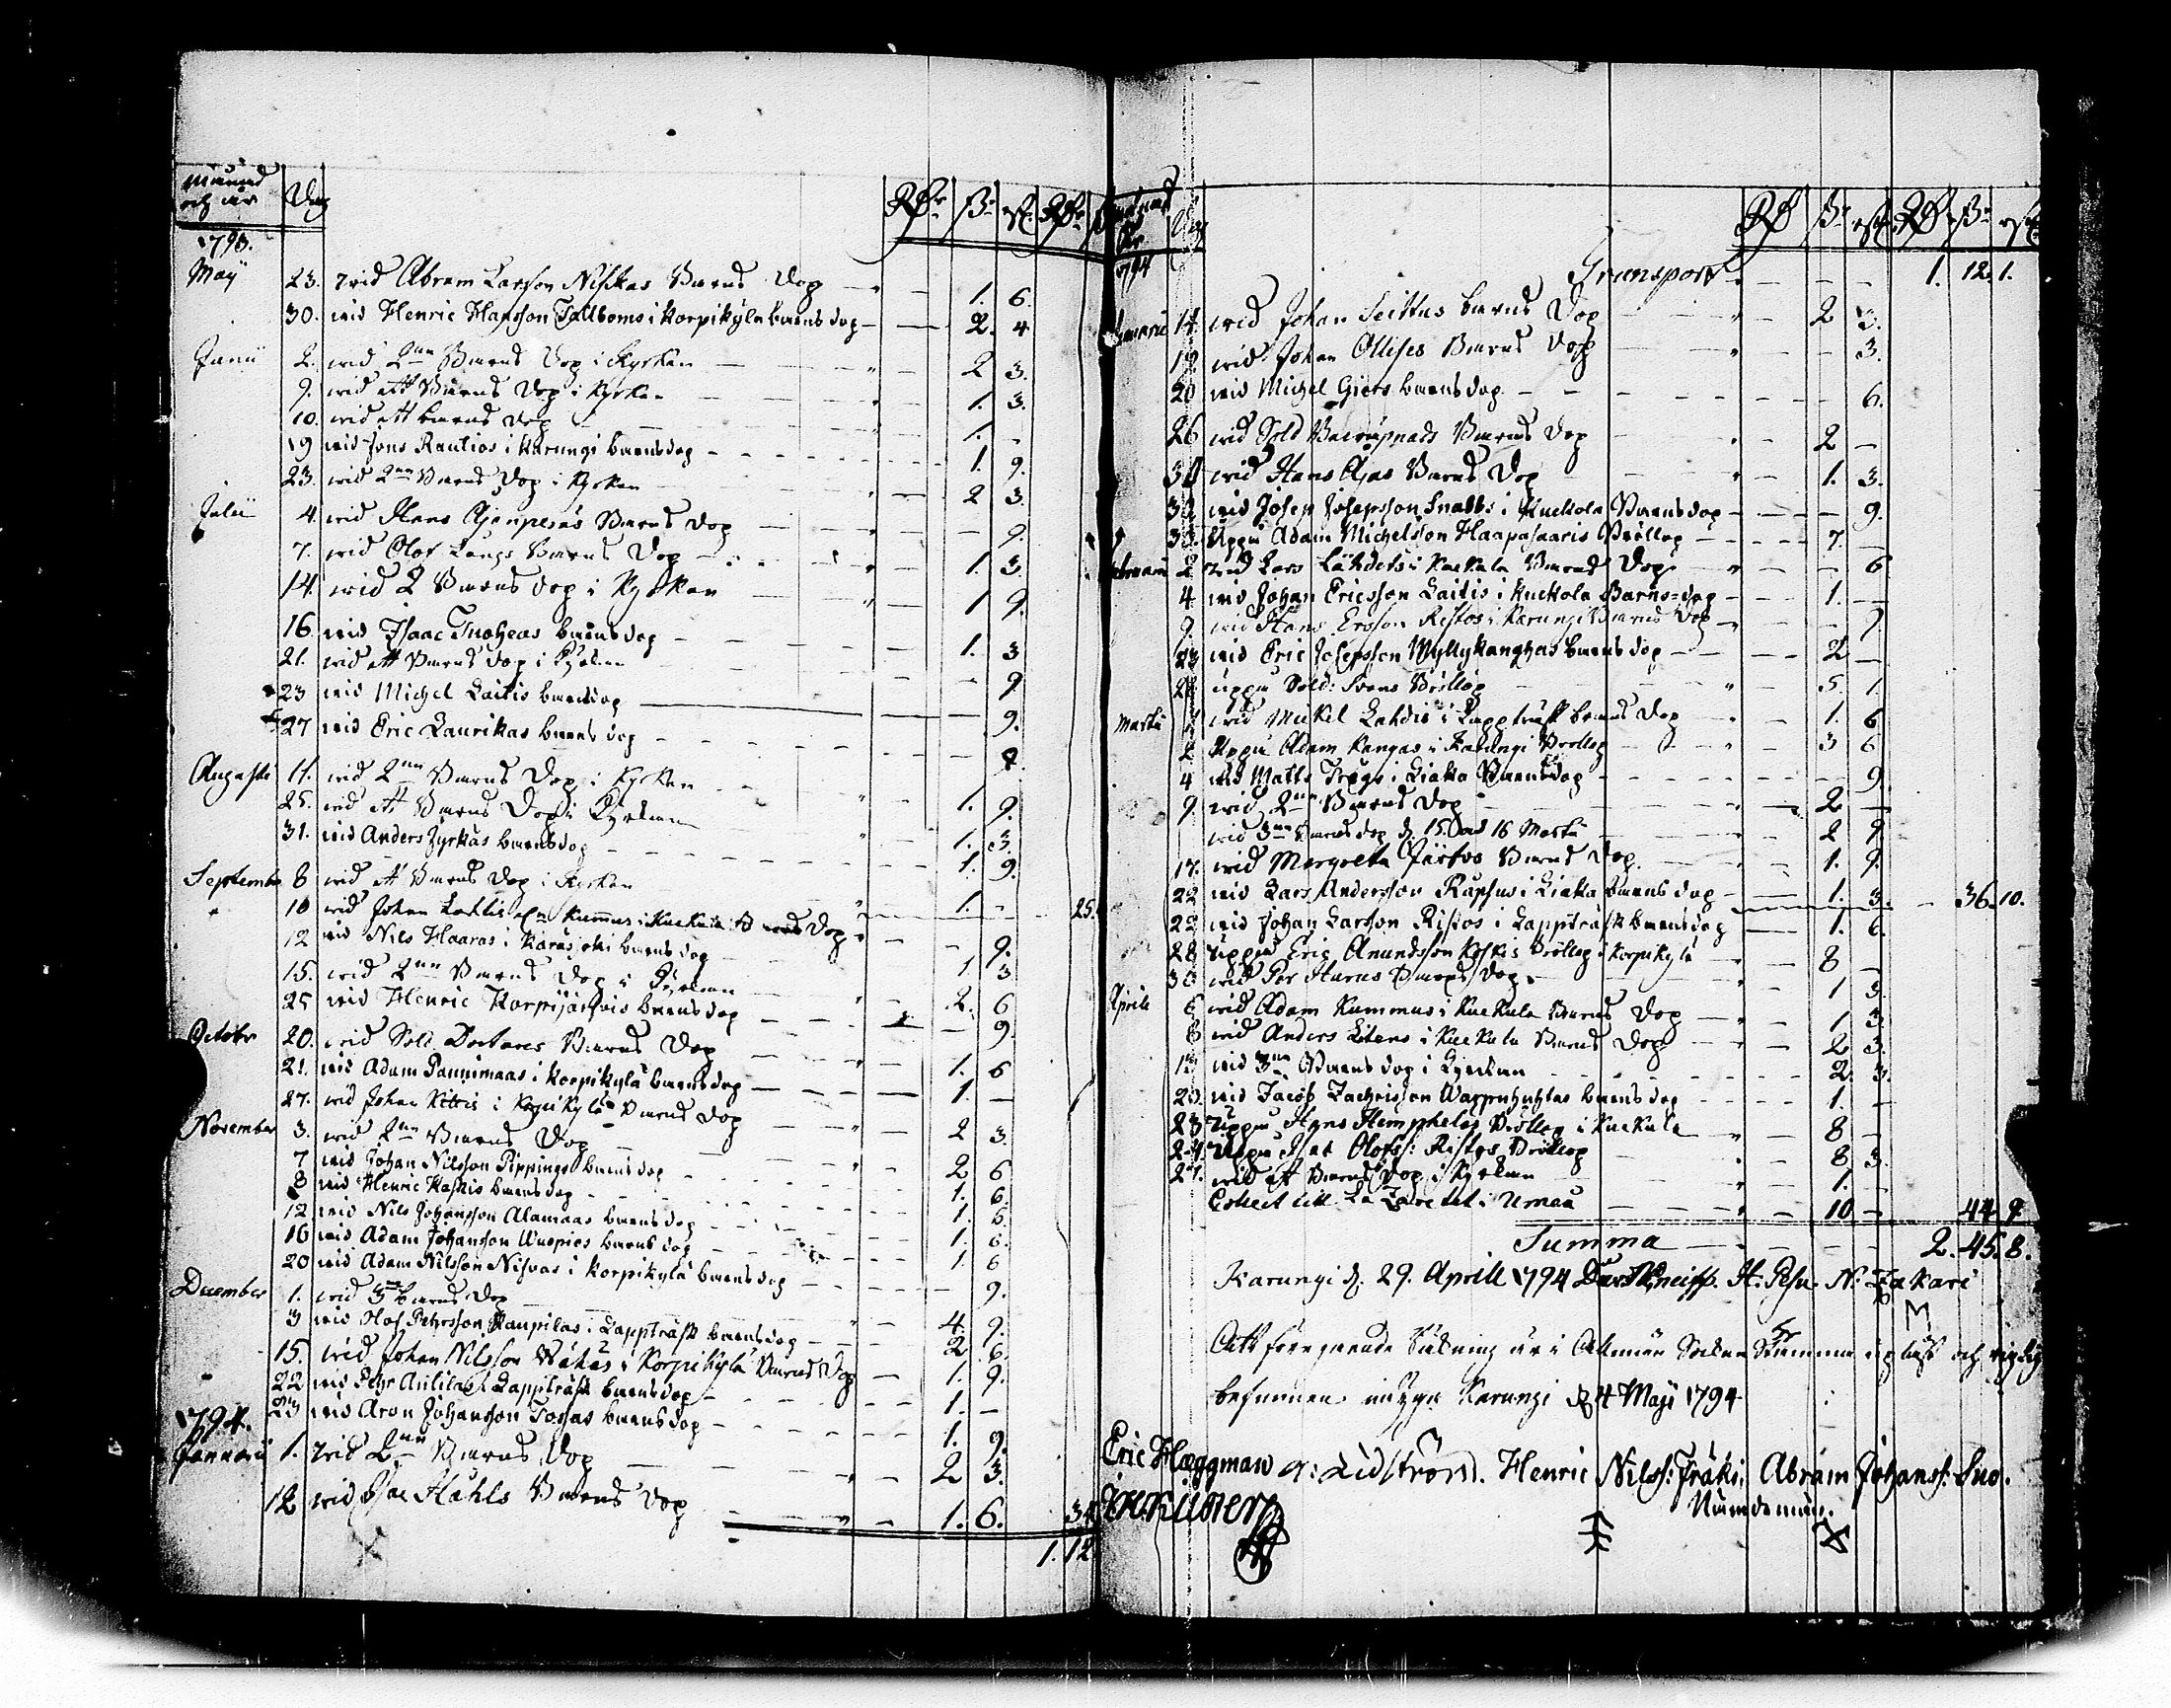 Månad och år Dag Rd. ß. rst. Rd. ß.
1793.
Maij 23. wid Abram Larsson Niskas Barns Dop 1. 6.
30. wid Henric Hansson Tallboms i Korpikylä barns dop 2. 4
Junii 2. wid 2ne Barns Dop i Kyrkan 2 3.
9. wid ett Barns Dop i Kyrkan 1. 3.
10. wid ett barns dop 1. -
19 wid Jons Rautios i Karungi barnsdop 1. 9.
23. wid 2ne Barns Dop i Kyrkan 2 3.
Julii 4. wid Hans Ajanpesäs Barns dop - 9.
7. wid Olof Längs Barns Dop 1. 3.
14. wid 2 Barns dop i Kyrkan 1 9.
16. wid Isaac Tuoheas barnsdop 1. 3
21. wid ett Barns dop i Kyrkan 9
23 wid Michel Laitis barnsdop 9.
27 wid Eric Laurikas barns dop 8.
Augusti 11. wid 2ne Barns Dop i Kyrkan 1. 9.
25. wid ett Barns Dop i Kyrkan 1. 3.
31. wid Anders Zyrkäs barnsdop 1. 9.
September 8 wid ett Barns Dop i Kyrkan 1. - 25.
10 wid Johan Lahtis Kummus i Kuckula Barns Dop 9.
12 wid Nils Haaras i Karasjoki barns dop 1 3
15. wid 2ne Barns Dop i Kyrkan 2. 6
25 wid Henric Korpijärfvis barnsdop 9.
October 20. wid Sold. Barns Dop 1. 6
21. wid Adam Pannimaas i Korpikylä barnsdop 1. -
27. wid Johan Kittis i Korpikylä Barns dop 2 3.
November 3. wid 2ne Barns Dop 2 6
7 wid Johan Nilsson Pippings barns dop 1. 6.
8 wid Henric Koskis barnsdop 1. 6.
12 wid Nils Johansson Alamaas barnsdop 1. 6.
16 wid Adam Johansson Wuopios barns dop 1. 6
20 wid Adam Nilsson Nisvas i Korpikylä barnsdop 9.
December 1. wid 3ne barns dop 4. 9.
3 wid Olof Pehrsson Kaupilas i Lappträsk barnsdop 2 6
15. wid Johan Nilsson Wäkäs i Korpikylä Barns Dop 1. 9.
22 wid Pehr Anttilas i Lappträsk barnsdop 1. -
23 wid Aron Johansson Tossas barnsdop 1. 9.
1794.
Januarii 1. wid 2ne Barns Dop 2 3.
12 wid Isac Stahls Barns Dop 1. 6. 34
1. 12
Månad År Dag Rd ß. rst. Rd. ß. rst.
1794
Transport 1. 12. 1.
Januarii 14. wid Johan Seittus barns Dop 2 3.
19. wid Johan Ollises Barns Dop 3.
20 wid Michel Giers barnsdop 6.
26 wid Sold Barns Dop 2 -
30 wid Hans Ajas Barns Dop 1. 3.
30 wid Josep Josepsson Snabbs i Kuckola Barnsdop 9.
30. Uppå Adam Michelsson Haapasaaris Bröllop 7. -
Februarii 2 wid Lars Lähdets i Kuckula Barns Dop 6
4 wid Johan Ericsson Laitis i Kuckola Barns-dop 1. -
9. wid Hans Ersson Ristos i Karungi Barns Dop 9.
23 wid Eric Josepsson Myllykanghas barnsdop 2 -
uppå Sold: Svens Bröllop 5. 1.
Martii wid Mickel Lahdis i Lappträsk barns Dop 1. 6
2 Uppå Adam Kangas i Karungi Bröllop 3 6
4 wid Matts i Liaka Barnsdop 9.
9. wid 2ne Barns Dop 2 -
wid 3ne Barns dop d. 15 och 16 Martii 2 9
17. wid Margreta Barns Dop 1. 9.
22 wid Lars Andersson Rapsus i Liaka barns dop 1. 3. 36. 10.
22 wid Johan Larsson Ristos i Lappträsk barnsdop 1. 6.
28 Uppå Eric Anundsson Koskis Bröllop i Korpikylä 8 -
30 wid Per Barns Dop 1 3.
Aprill 6 wid Adam Kummus i Kuckula Barns Dop 1 3.
6 wid Anders Litens i Kuckula Barns Dop 2 3.
13 wid 3ne Barns dop i Kyrkan 2. 3.
20. wid Jacob Zachrisson barnsdop 1. -
23 Uppå Hans Hemphelas Bröllop i Kuckula 8 -
24. Uppå Isac Olofss: Ristos Bröllop 8 3.
27. wid ett Barns Dop i Kyrkan 1. -
Collect till La Zarettet i Umeå 10 - 44 9
Summa 2. 45. 8.
Karungi d. 29. Aprill 1794 N: Zakari
Att föregående Räkning är i Allmän Sockne Stämma uplast och rigtig
befunnen intyga Karungi d 4 Maji 1794
Eric Hæggman A: Lidström. Henric Nilss: Fräki Abram Johanss: Suo.
Nämdemän.